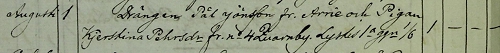 Augusti 1 Drängen Pål Jönsson fr. Arrie och Pigan
Kjerstina Pehrsdr fr. No 4 Quarnby. Lystes 1a ggn 1/6 1 – –